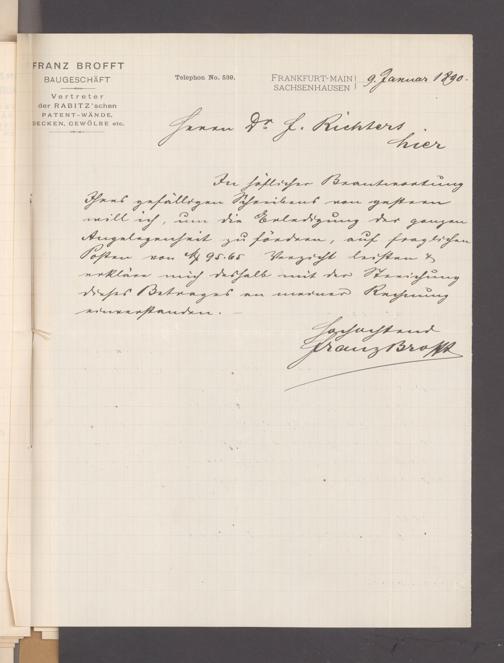 FRANZ BROFFT
BAUGESCHÄFT
Vertreter
der RABITZ'schen
PATENT-WÄNDE,
DECKEN, GEWÖLBE etc.
Telephon No. 539.
FRANKFURT-MAIN
SACHSENHAUSEN
9. Januar 1890.
Herrn Dr. J. Richters
hier
In höflicher Beantwortung
Ihres gefälligen Schreibens von gestern
will ich, um die Erledigung der ganzen
Angelegenheit zu fördern, auf fraglichen
Posten von M 95.65 Verzicht leisten &
erkläre mich deshalb mit der Streichung
dieses Betrages an meiner Rechnung
einverstanden. —
Hochachtend
Franz Brofft